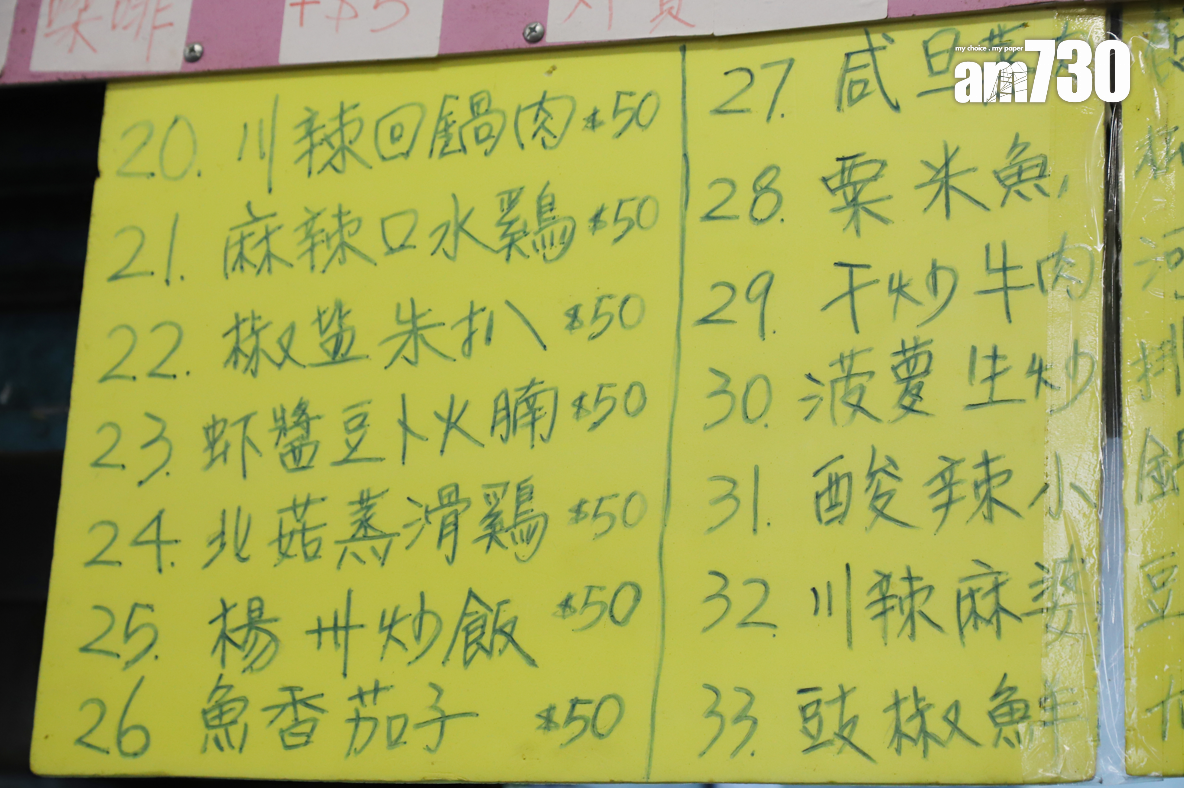 啡
+$5
外賣
my choice . my paper
am730
20. 川辣回鍋肉 $50
21. 麻辣口水鷄 $50
22. 椒盐朱扒 $50
23. 虾醬豆卜火腩 $50
24. 北菇蒸滑鷄 $50
25. 楊卅炒飯 $50
26 魚香茄子 $50
27. 咸旦
28. 粟米魚
29. 干炒牛肉
30. 菠萝生炒
31. 酸辣小
32. 川辣麻婆
33. 豉椒鮮
河
排
鍋
豆